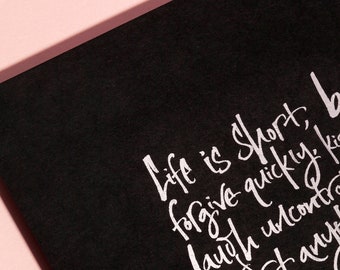 Life is short, b
forgive quickly, kis
laugh uncontrol
t anyt